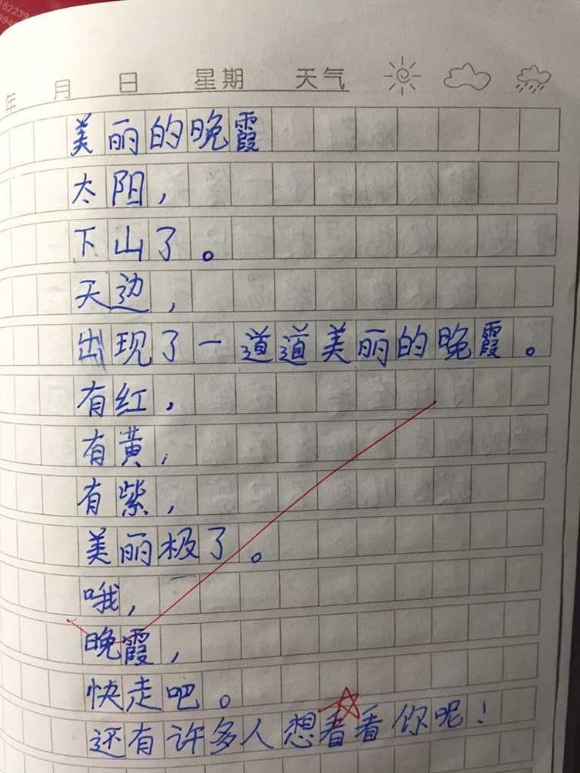 年 月 日 星期 天气
美丽的晚霞
太阳，
下山了。
天边，
出现了一道道美丽的晚霞。
有红，
有黄，
有紫，
美丽极了。
哦，
晚霞，
快走吧。
还有许多人想看看你呢！